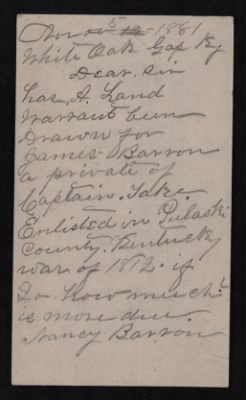 Nov 5 1881
White Oak Gap Ky
Dear Sir
has, A. Land
Warrant been
Drawn for
James Barron
a private of
Captain. Tate.
Enlisted in Pulaski
County. Kentucky
war of 1812. if
So. how much
is more due.
Nancy Barron